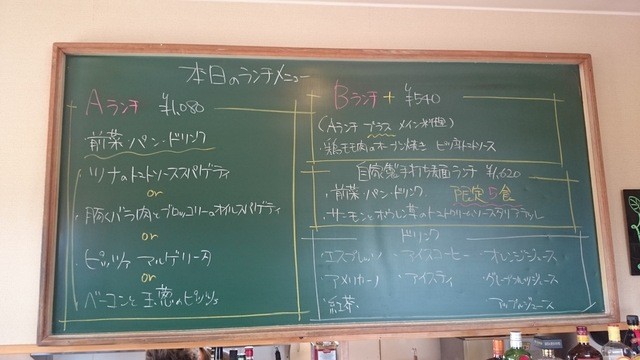 本日のランチメニュー
Aランチ ¥1,080
前菜 パン・ドリンク
・ツナのトマトソーススパゲティ
or
・豚バラ肉とブロッコリーのオイルスパゲティ
or
・ピッツァ マルゲリータ
or
・ベーコンと玉葱のピッツァ
Bランチ + ¥540
(Aランチ プラス メイン料理)
・鶏モモ肉のオーブン焼き ピッツァ風トマトソース
自家製手打ち麺ランチ ¥1,620
・前菜 パン・ドリンク 限定5食
・サーモンとホウレン草のトマトクリームソースタリアテッレ
ドリンク
・エスプレッソ ・アイスコーヒー ・オレンジジュース
・アメリカーノ ・アイスティ ・グレープフルーツジュース
・紅茶 アップルジュース